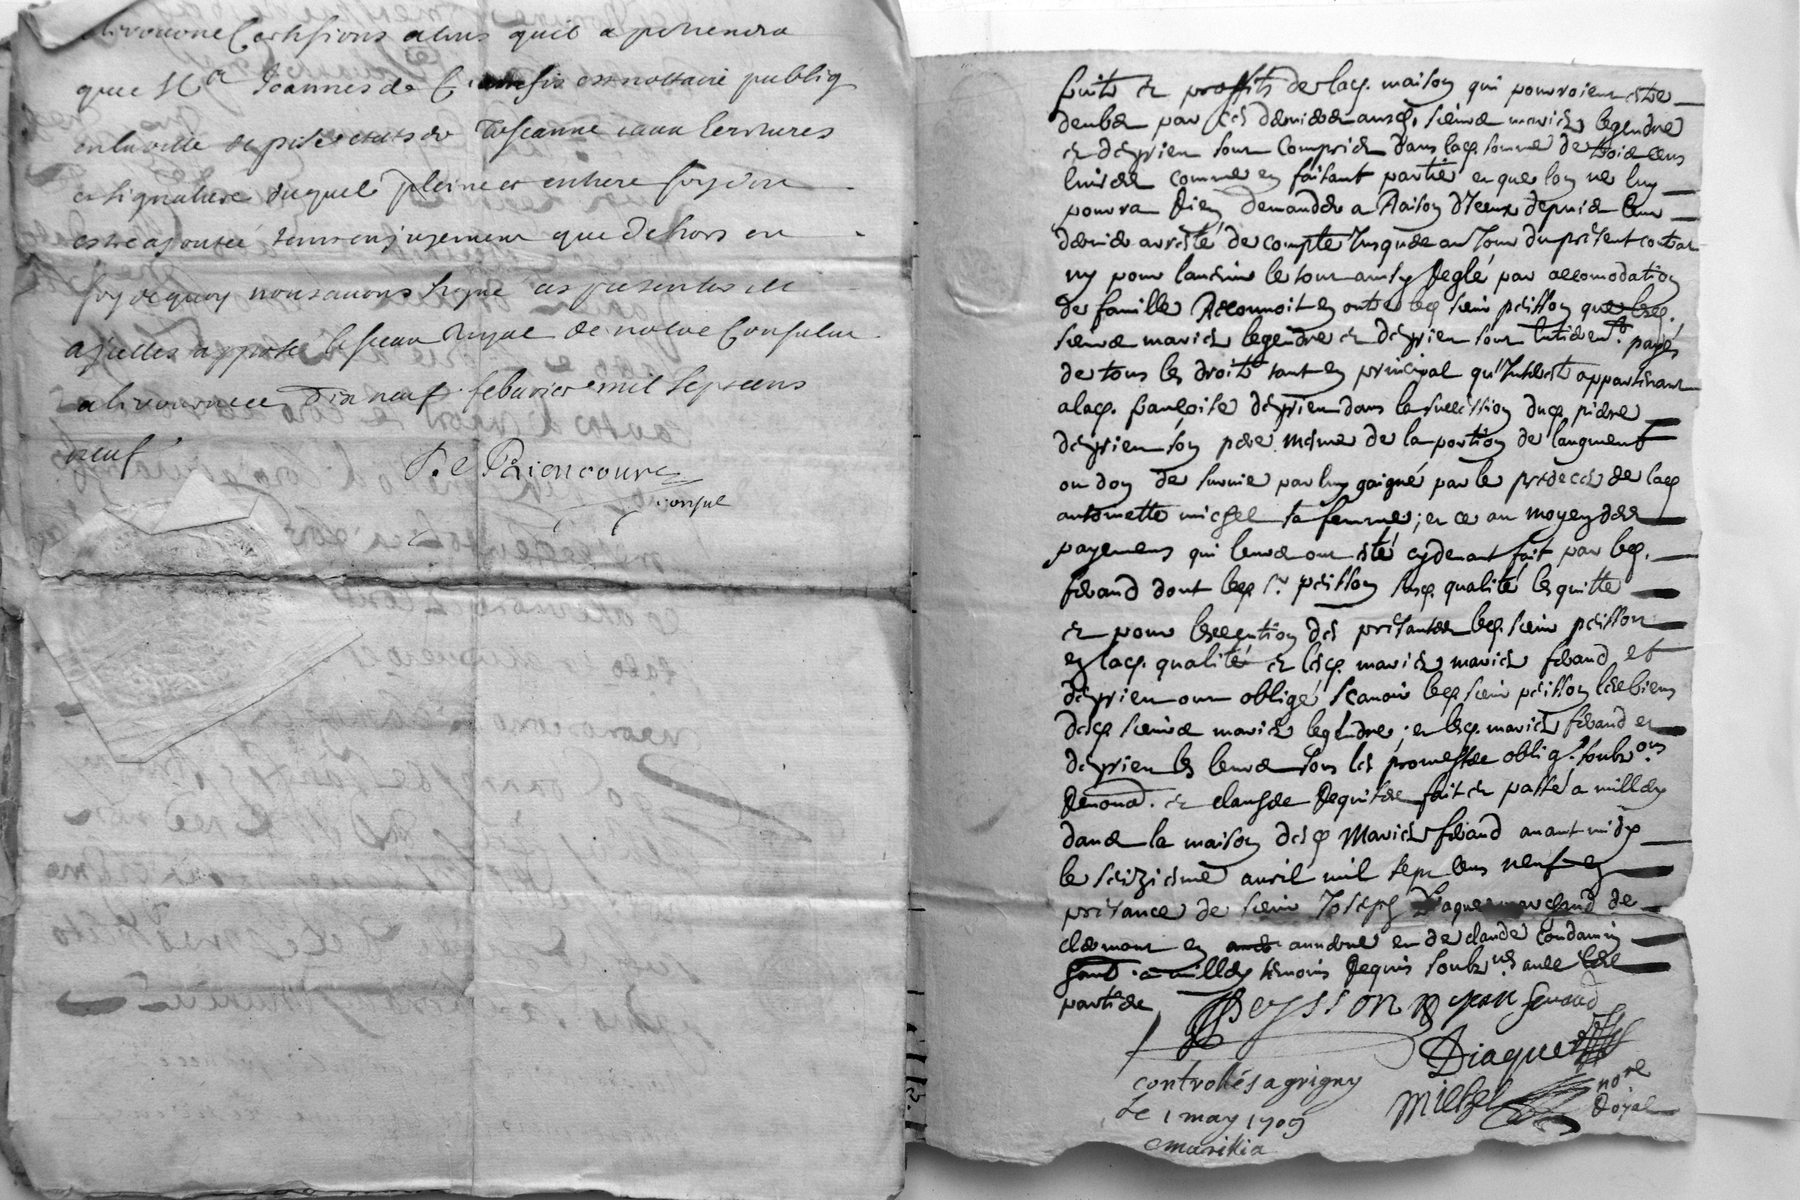 alivourne Certifions atous quil apartiendra
que Sr Joannes de est nottaire publiq
en la ville de pise estats de Toscanne aux Ecritures
et signatures duquel pleine et entiere foy doit
estre ajoutée tant en jugement que dehors en
foy dequoy nous avons signé ces presentes et
a jcelles apposé le sceau Royal de notre Consulat
a livourne ce dix neuf febvrier mil sept cens
neuf
De Riencourt
consul
fruits et proffits de lad. maison qui pourroient estre
deubs par ces derniers ausd. sieurs maries legendre
et deyrieu sont compris dans lad. somme de trois cens
livres comme en faisant partie et que lon ne luy
pourra Rien demander a Raison dIceux depuis leur
dernier arresté de compte Jusques au Jour du présent contrat
ny pour landin le tout ainsy Reglé par accomodation
de famille Reconnoit en outre led. sieur peisson que lesd.
sieurs maries legendre et deyrieu sont Entierem.t payés
de tous les droits tant en principal qu'Interest appartenant
a lad. françoise deyrieu dans la succession dud. pierre
deyrieu son pere mesme de la portion de laugment
ou don de survie par luy gaigné par le predeces de lad.
antoinette michel sa femme; et ce au moyen des
payemens qui leurs ont esté cydevant fait par led.
feraud dont led. sr. peisson susd. qualité les quitte
et pour lexecution des présantes led. sieur peisson
en lad. qualité et lesd. maries maries feraud et
deyrieu ont obligé scavoir led. sieur peisson les biens
desd. sieurs maries legendre; et lesd. maries feraud et
deyrieu les leurs sous les promesses oblig.s soubz.ons
Renonc. et clauses Requises fait et passé a millery
dans la maison desd. Maries feraud avant midy
le seizieme avril mil sept cens neuf en
présance de sieur Joseph Diaque marchand de
clermont en auvergne et de claude Condamin
a millery temoins Requis soubz.nés avec les
parties
Peysson Jean feraud
Diaque
Michel nore Royal
controllés a grigny
Le 1 may 1709